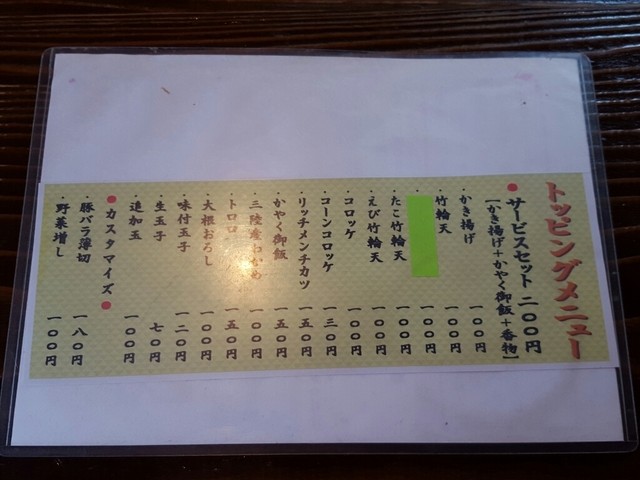 トッピングメニュー
●サービスセット 二〇〇円
【かき揚げ+かやく御飯+香物】
・かき揚げ 一〇〇円
・竹輪天 一〇〇円
・ 一〇〇円
・たこ竹輪天 一〇〇円
・えび竹輪天 一〇〇円
・コロッケ 一〇〇円
・コーンコロッケ 一三〇円
・リッチメンチカツ 一五〇円
・かやく御飯 一五〇円
・三陸産わかめ 一〇〇円
・トロロ 一五〇円
・大根おろし 一〇〇円
・味付玉子 一二〇円
・生玉子 七〇円
・追加玉 一〇〇円
●カスタマイズ●
・豚バラ薄切 一八〇円
・野菜増し 一〇〇円